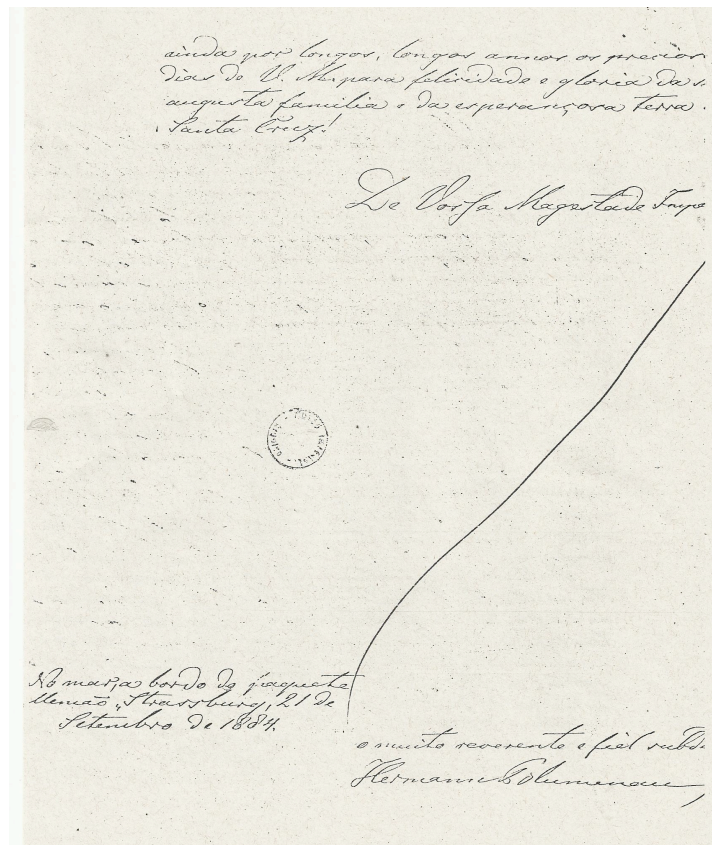 ainda por longos, longos annos os precios
dias de V. M. para felicidade e gloria da s
augusta familia e da esperançosa terra
Santa Cruz!
De Vossa Magestade Impe
No mar, a bordo do paquete
llemão „Strassburg, 21 de
Setembro de 1884.
o muito reverente e fiel subd
Hermann Blumenau